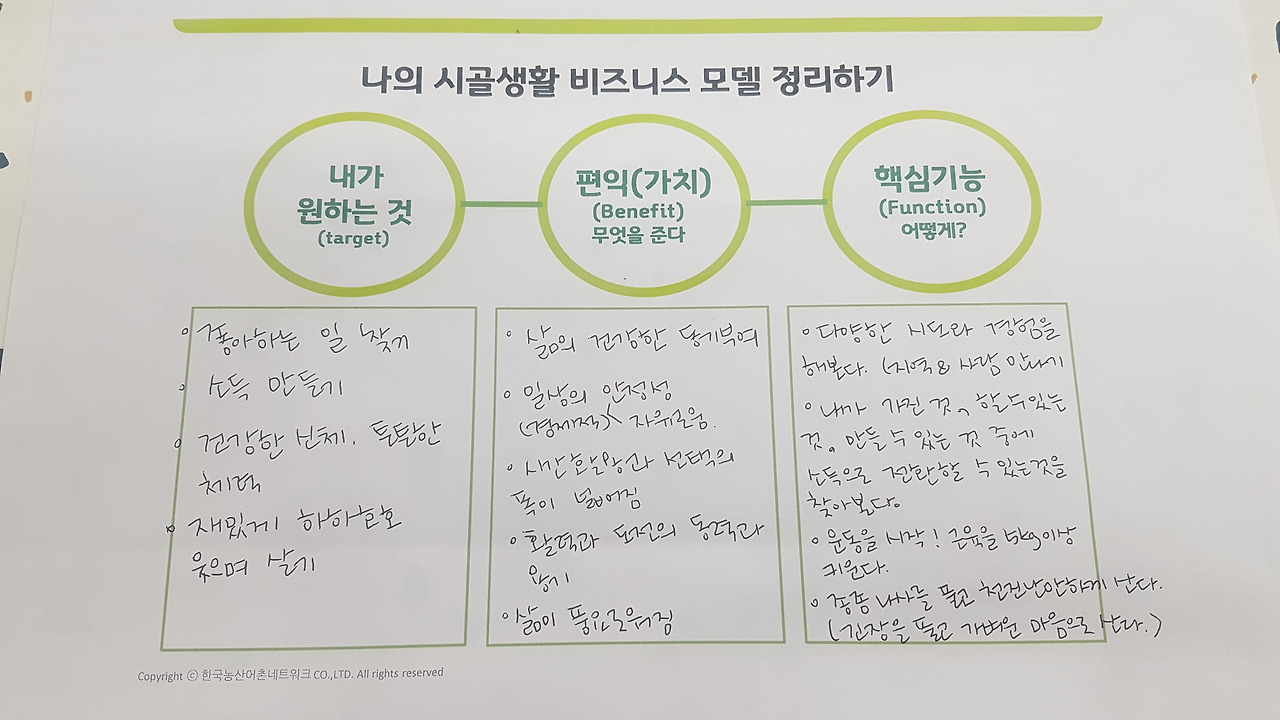 나의 시골생활 비즈니스 모델 정리하기
내가
원하는 것
(target)
편익(가치)
(Benefit)
무엇을 준다
핵심기능
(Function)
어떻게?
좋아하는 일 찾기
소득 만들기
건강한 신체. 튼튼한
체력
재밌게 하하호호
웃으며 살기
삶의 건강한 동기부여
일상의 안정성
(경제적) 자유로움.
시간활용과 선택의
폭이 넓어짐
활력과 도전의 동력과
용기
삶이 풍요로워짐
다양한 시도와 경험을
해본다. (지역& 사람 만나기
내가 가진 것, 할 수 있는
것, 만들 수 있는 것 중에
소득으로 전환할 수 있는것을
찾아본다.
운동을 시작! 근육을 5kg이상
키운다.
종종 나사를 풀고 천진난만하게 산다.
(긴장을 풀고 가벼운 마음으로 산다.)
Copyright ⓒ 한국농산어촌네트워크 CO.,LTD. All rights reserved